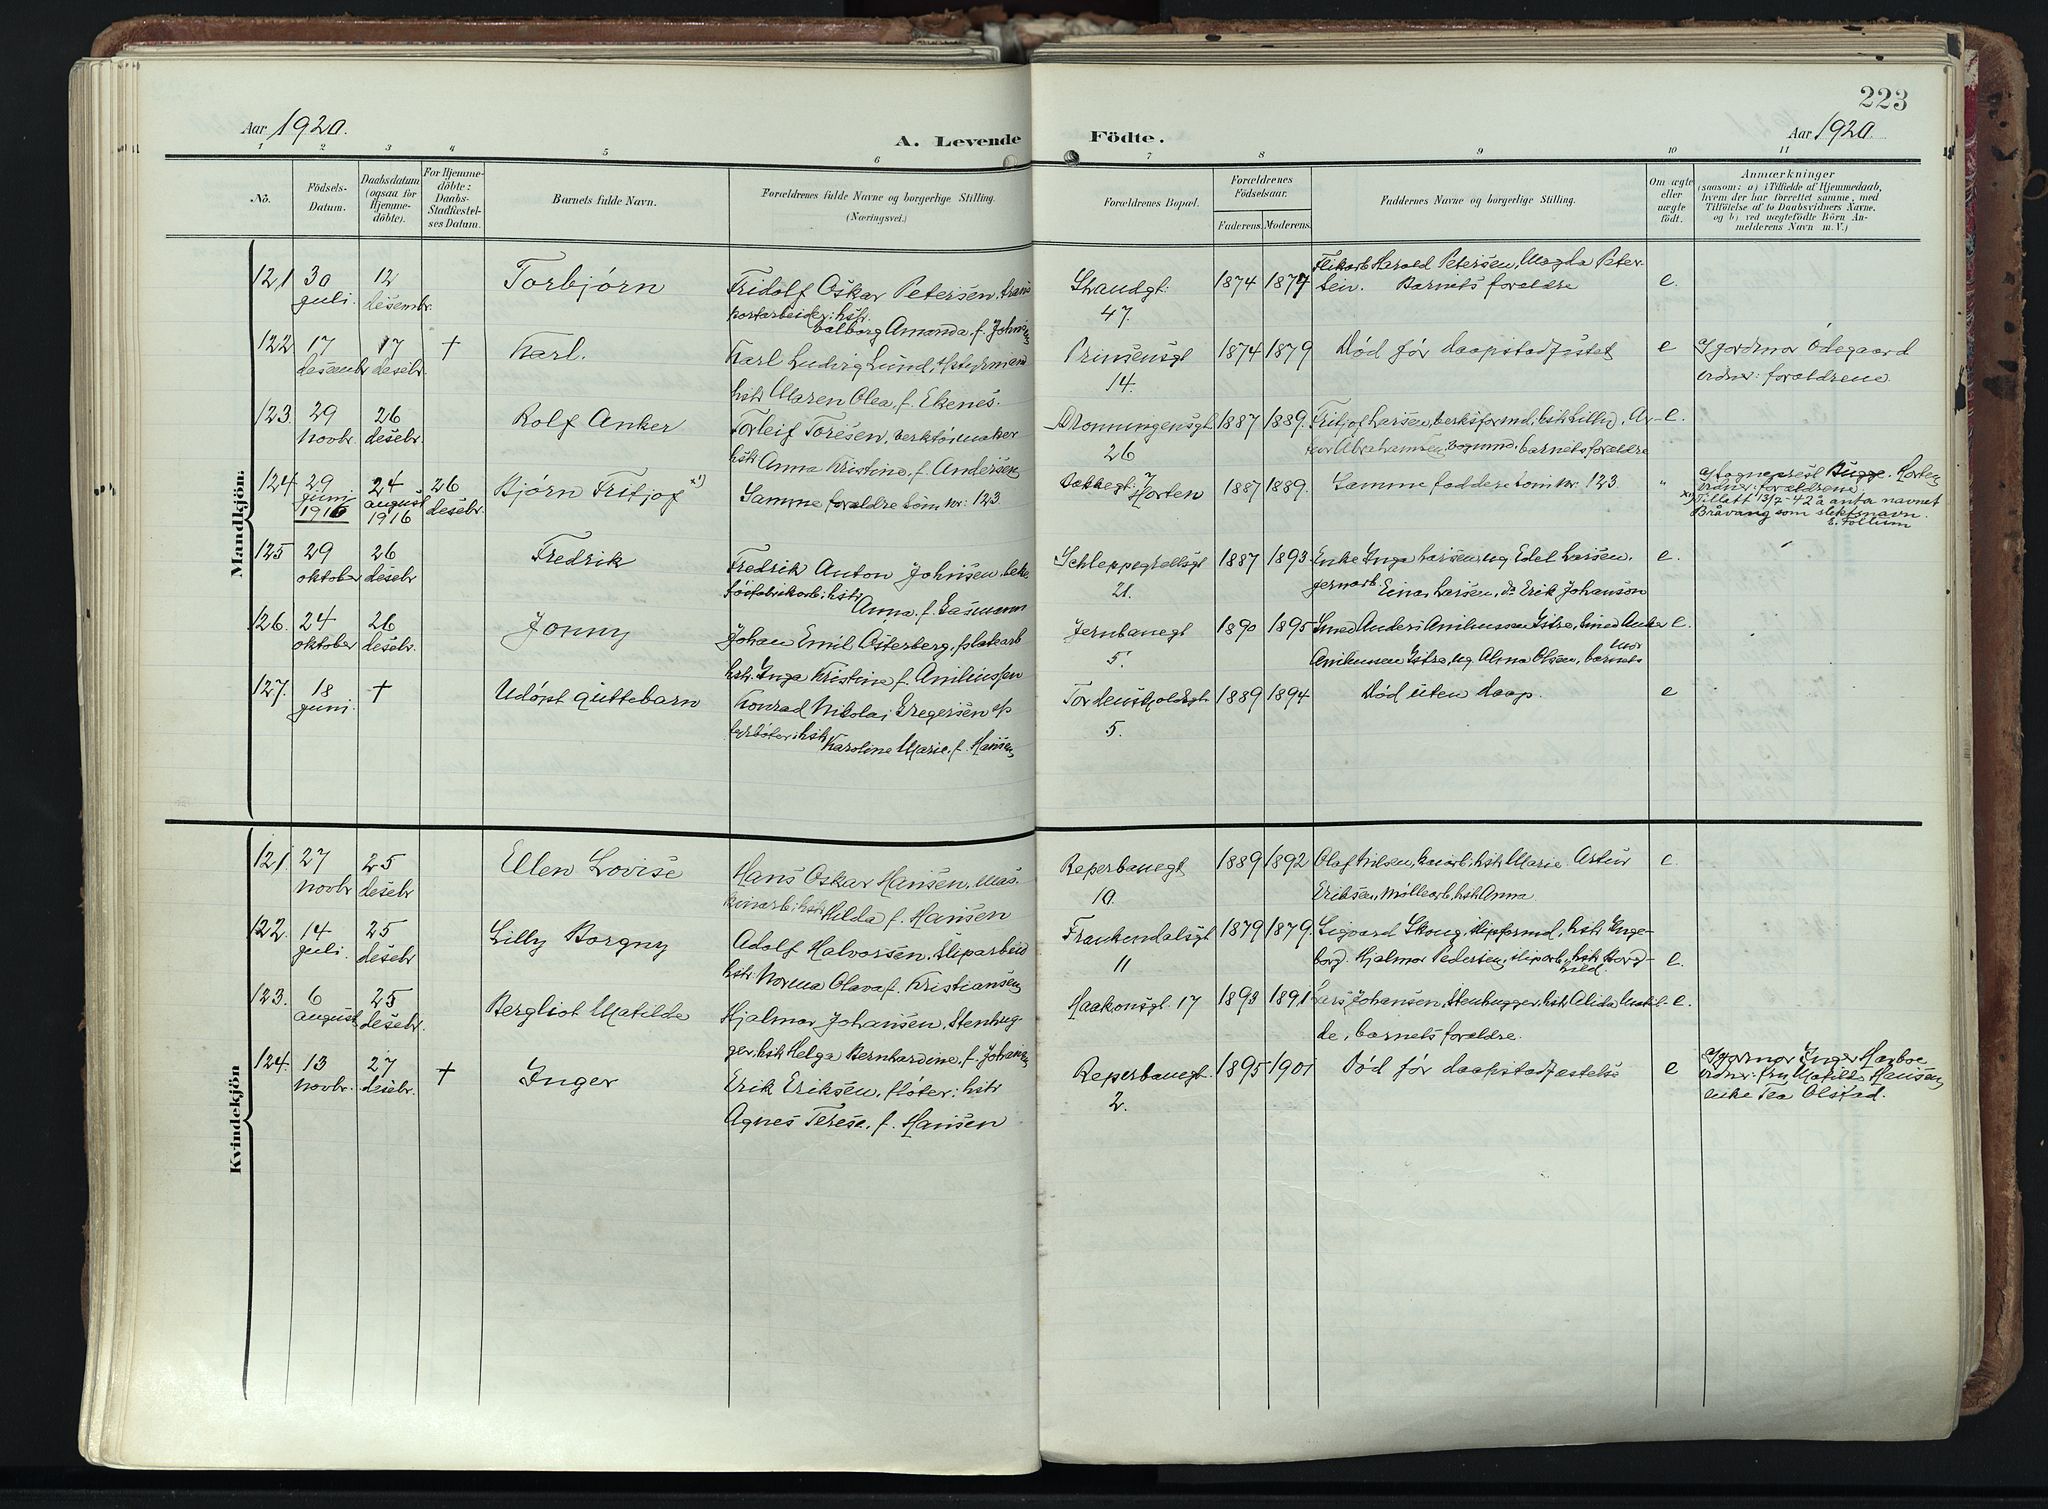 223
Aar 1920.
A. Levende Födte.
Aar 1920.
1 2 3 4 5 6 7 8 9 10 11
No.
Födsels-Datum.
Daabsdatum (ogsaa for Hjemmedöbte).
For Hjemmedöbte: Daabs-Stadfæstelses Datum.
Barnets fulde Navn.
Forældrenes fulde Navne og borgerlige Stilling.
(Næringsvei.)
Forældrenes Bopæl.
Forældrenes Födselsaar.
Faderens. Moderens.
Faddernes Navne og borgerlige Stilling.
Om ægte eller uægte födt.
Anmærkninger
(saasom: a) i Tilfælde af Hjemmedaab,
hvem der har forrettet samme, med
Tilföielse af to Daabsvidners Navne.
og b) ved uægtefödte Börn An-
melderens Navn m. V.)
Mandkjön.
121 30 juli. 12 desembr. Torbjørn
Fridolf Oskar Petersen, trans
portarbeider: hstr.
Valborg Amanda f. Johnsen
Strandgt. 47. 1874 1877
Harold Petersen, Magda Peter-
sen. Barnets forældre e.
122 17 desembr 17 desebr. + Karl.
Karl Ludvig Lund,
hstr Maren Olea, f. Ekenes.
Prinsensgt 14. 1874 1879
Død før daapstadfæstet e
Jordmor Ödegaard
vidner: forældrene.
123. 29 novbr. 26 desebr. Rolf Anker
Torleif Toresen, verktøimaker
hstr Anna Kristine, f. Andersen
Dronningensgt 26 1887 1889.
Fritjof Larsen, verksformd, hstr Lilly, Ar-
Abrahamsen, barnets forældre e.
124. 29 juni 1916 24 august 1916 26 desebr. Bjørn Fritjof x)
Samme forældre som nr. 123
Horten 1887 1889.
Samme faddere som nr. 123 "
Sogneprest Bugge. Horten
vidner: forældrene
x) Tillatt 13/2-42 å anta navnet
Bråvang som slektsnavn.
E. Follum
125 29 oktober 26 desebr. Fredrik
Fredrik Anton Johnsen,
hstr Anna, f. Gasmann
Schleppegrellsgt 21. 1887 1893
Enke Inga Larsen, ug Edel Larsen,
jernarb. Einar Larsen, do Erik Johanson e.
126. 24 oktober 26 desebr. Jonny
Johan Emil Österberg, platearb
hstr. Inga Kristine f.
Jernbanegt 5. 1890 1895
Smed Anders Istre, smed
Istre, ug Alma Olsen, barnets mor e.
127. 18 juni. + Udöpt guttebarn
Konrad Nikolai Gregersen
fyrböter: hstr Karoline Marie, f. Hansen
Tordenskioldsgt. 5. 1889 1894
Død uten daap. e
Kvindekjön
121. 27 novbr 25 desebr Ellen Lovise
Hans Oskar Hansen, Mas-
kinarb: hstr Hilda f. Hansen
Reperbanegt 10. 1889 1892
Olaf Nilsen, hstr Marie Artur
Eriksen, Mölleartb, hstr Anna e.
122. 14 juli. 25 desebr Lilly Borgny
Adolf Halvorsen, Sliparbeid
hstr. Norma Olava f. Kristiansen
Frankendalsgt 11 1879 1879.
Sigvard Skoug, slipformd, hstr Inge-
borg. Hjalmar Pedersen, sliparb, hstr Borg-
hild. e.
123. 6 august 25 desebr. Bergliot Matilde
Hjalmar Johansen, Stenhug-
ger, hstr Helga Bernhardine, f. Johansen
Haakonsgt. 17 1893 1891
Lars Johansen, Stenhugger, hstr Alida Matil-
de, barnets forældre. e.
124. 13 novbr. 27 desebr. + Inger
Erik Eriksen, fløter: hstr
Agnes Terese, f. Hansen
Reperbanegt. 2. 1895 1901
Død før daapstadfæstelse e
Jormor Inger Marboe
vidner: fru Matilde Hansen,
enke Tea Olstad.